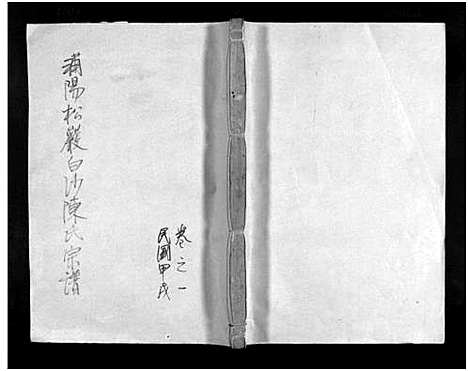 浦陽松巖白沙陳氏宗譜
卷之一
民國甲戌